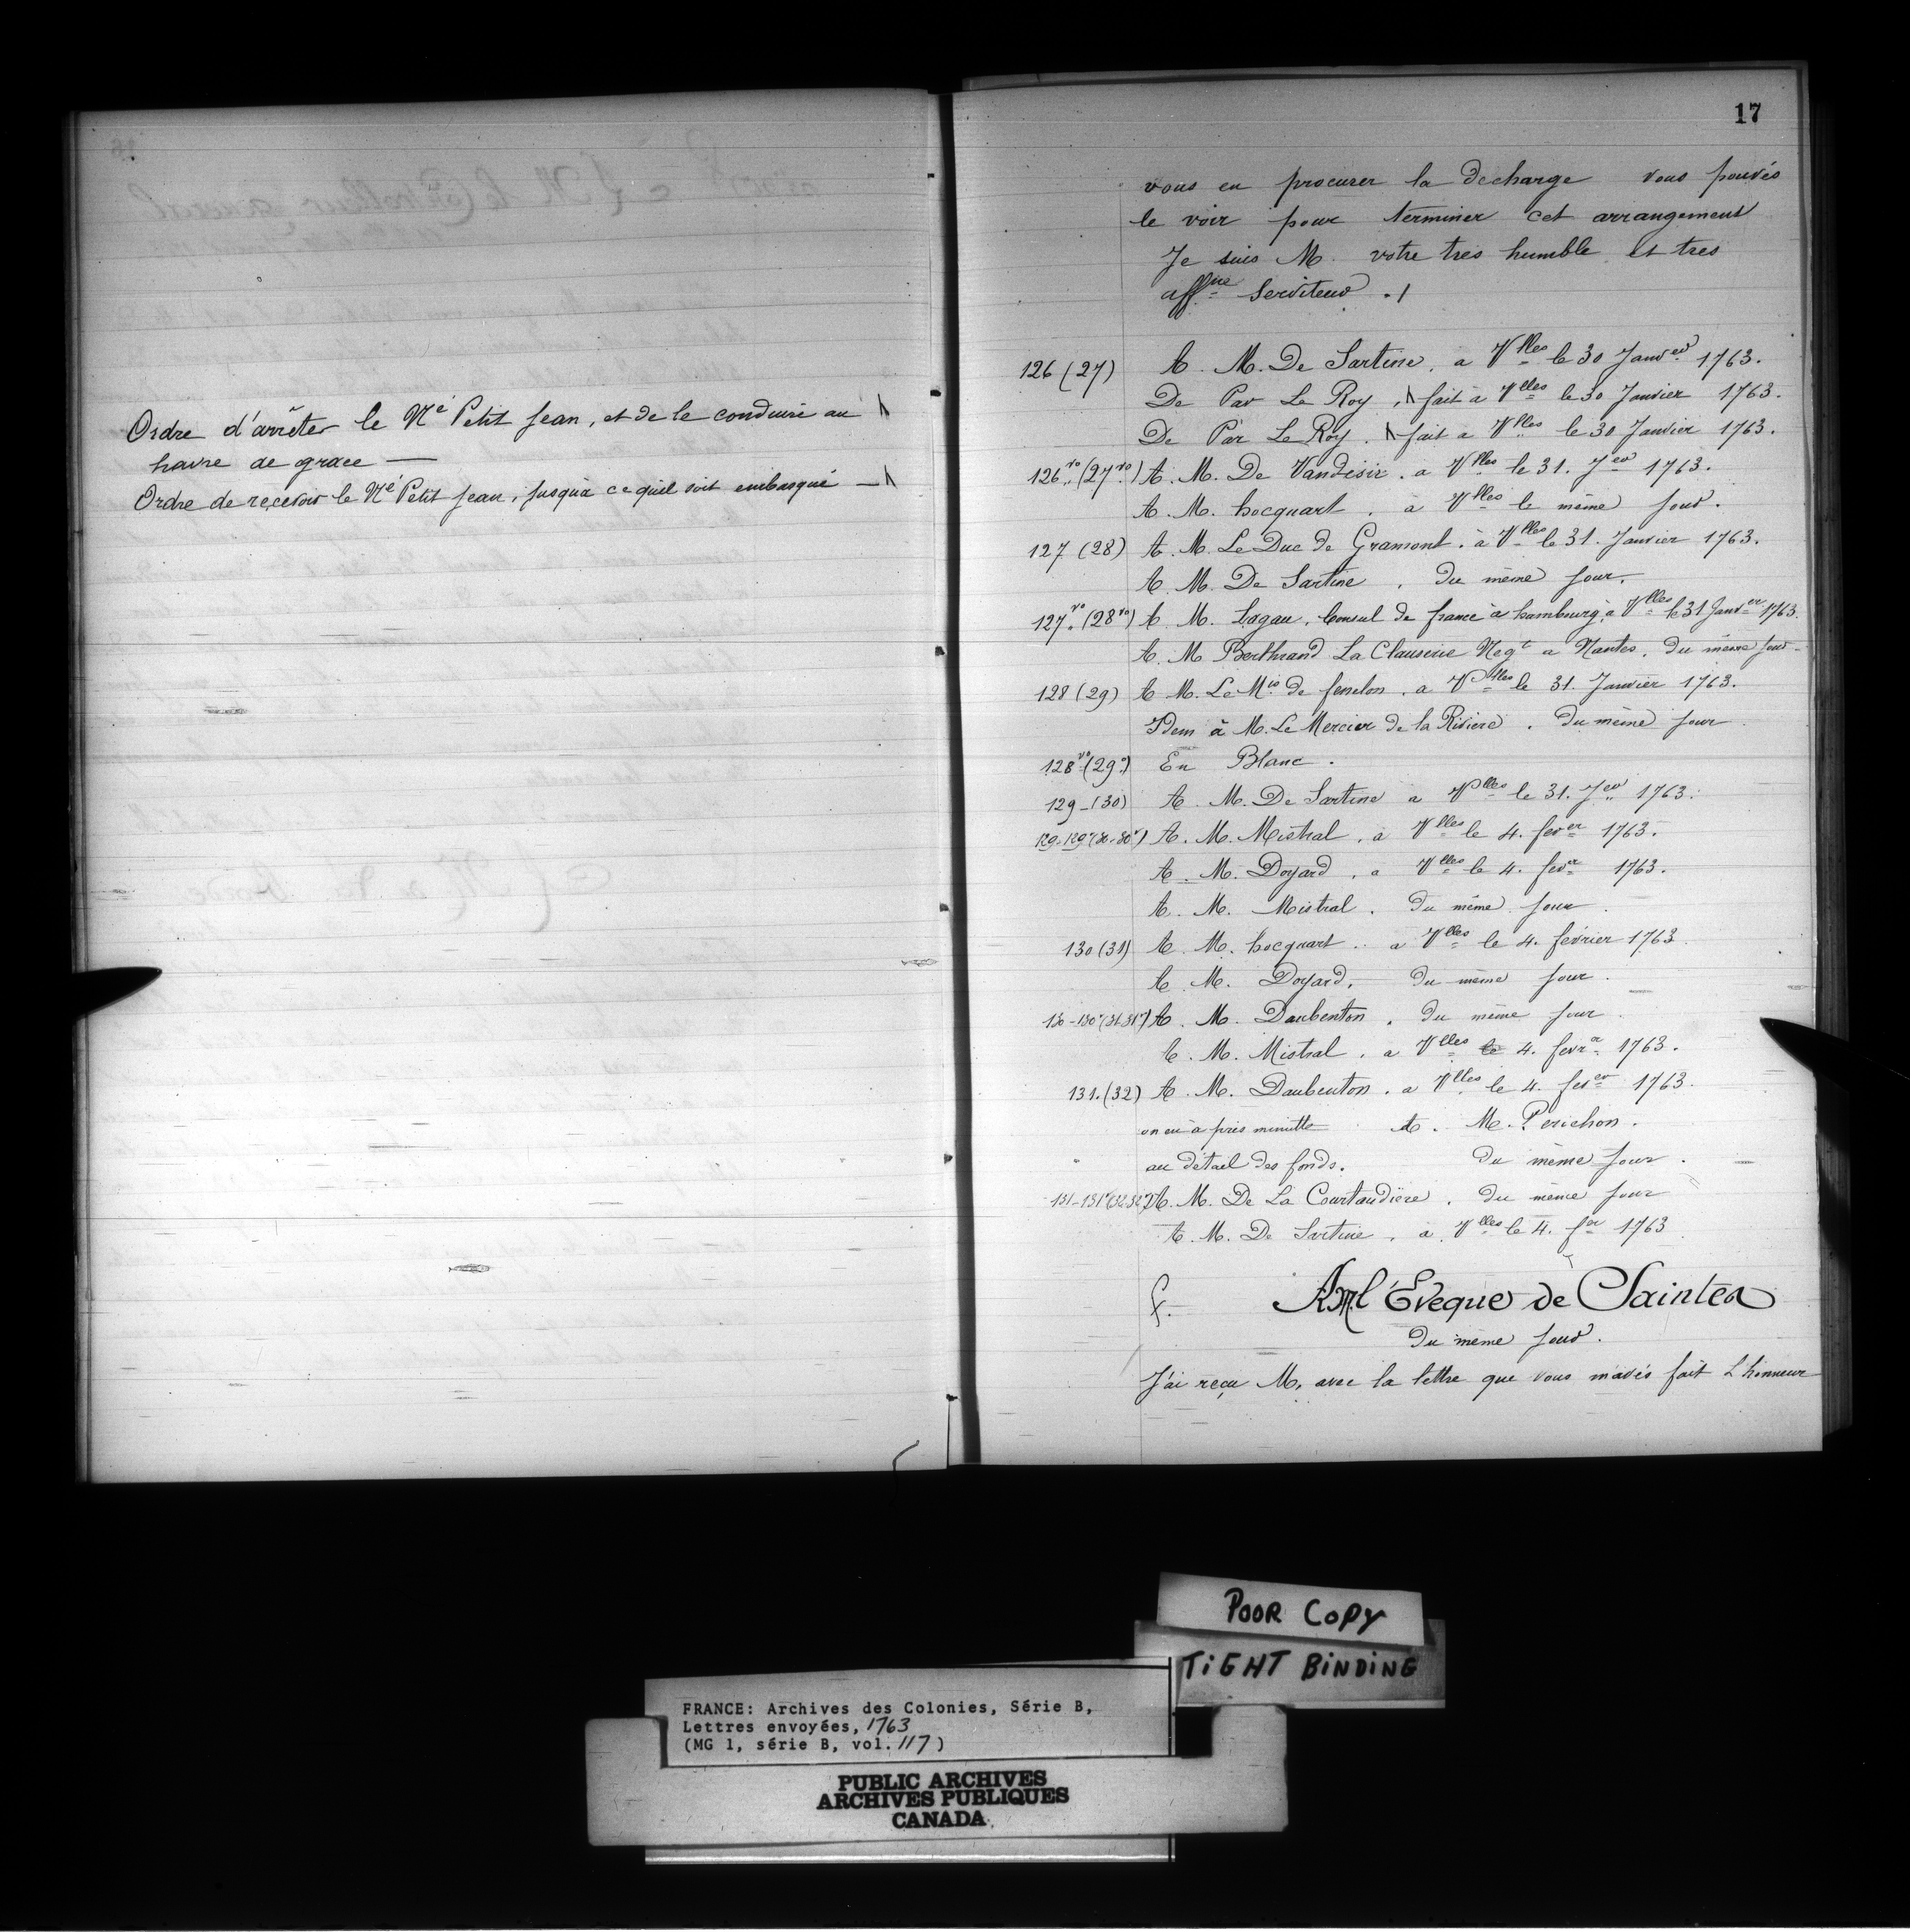 Ordre d'arrêter le Né Petit Jean, et de le conduire au
havre de grace —
Ordre de recevoir le Né Petit Jean, jusqu'à ce quil soit embarqué —
17
vous en procurer la decharge vous pouvés
le voir pour terminer cet arrangement
Je suis M. votre tres humble et tres
affne Serviteur ./
126 (27) A. M. De Sartine, a Vlles le 30 Janver 1763.
De Par Le Roy, fait à Vlles le 30 Janvier 1763.
De Par Le Roy. fait a Vlles le 30 Janvier 1763.
126 vo (27 vo) A. M. De Vandesir. a Vlles le 31. Jer 1763.
A. M. hocquart. à Vlles le même jour.
127 (28) A. M. Le Duc de Gramont. à Vlles le 31. Janvier 1763.
A. M. De Sartine, du même jour.
127 vo (28 vo) A M. Lagau, Consul de france à hambourg, à Vlles le 31 Janver 1763.
A. M Berthrand La Clauserie Negt a Nantes, du même jour
128 (29) A M. Le Mis de fenelon. a Vlles le 31. Janvier 1763.
Idem à M. Le Mercier de la Riviere. du même jour
128 vo (29 o) En Blanc.
129 - (30) A. M. De Sartine a Vlles le 31. Jer 1763.
129-129 v (30-30 v) A. M. Mistral, à Vlles le 4. fever 1763.
A. M. Doyard, a Vlles le 4. fevr 1763.
A. M. Mistral. du même jour
130 (31) A M. hocquart. a Vlles le 4. février 1763.
A. M. Doyard. du même jour.
130-130 v (31.31 v) A. M. Daubenton, du même jour
A. M. Mistral, a Vlles le 4. fevrr 1763.
131. (32) A M. Daubenton. a Vlles le 4. fever 1763.
on en à pris minutte A. M. Perichon.
au détail des fonds. du même jour.
131-131 v (32.32 v) A. M. De La Courtaudière. du même jour
A. M. De Sartine, à Vlles le 4. fer 1763
f. A Ml Évêque de Saintes
du même jour.
J'ai reçu M, avec la lettre que vous m'avés fait L honneur
POOR COPY
TIGHT BINDING
FRANCE: Archives des Colonies, Série B,
Lettres envoyées, 1763
(MG 1, série B, vol. 117)
PUBLIC ARCHIVES
ARCHIVES PUBLIQUES
CANADA